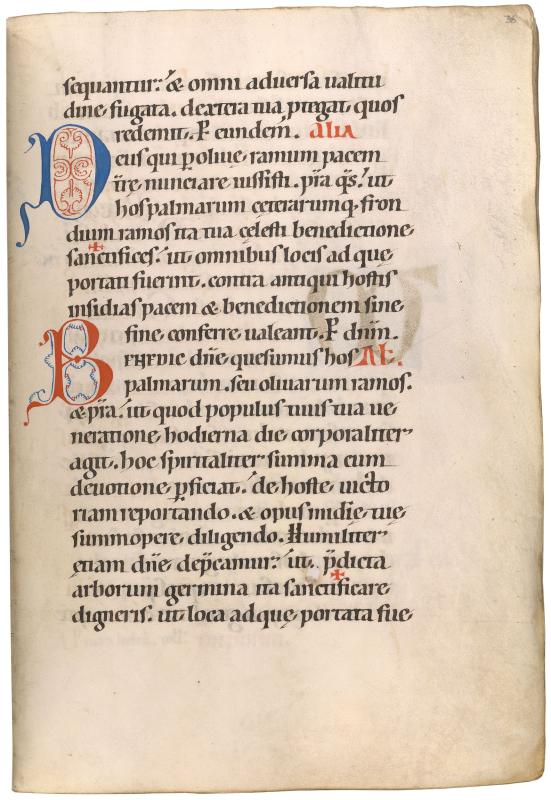 36
sequantur. & omni adversa valitu
dine fugata. dextera tua ꝓtegat quos
redemit. P eundem̄. alia
Deus qui ꝑ olive ramum pacem
t̄re nunciare iussisti. p̄sta q̄s. ut
hos palmarum ceterarumq; fron
dium ramos ita tua celesti benedictione
san✠ctifices. ut omnibus locis ad que
portati fuerint. contra antiqui hostis
insidias pacem & benedictionem sine
fine conferre valeant. P dn̄m.
Benedic dn̄e quesumus hos Al.
palmarum. seu olivarum ramos.
& p̄sta. ut quod populus tuus tua ve
neratione hodierna die corporaliter
agit. hoc spiritaliter summa cum
devotione ꝑficiat. de hoste victo
riam reportando. & opus mīdie tue
summopere diligendo. Humiliter
etiam dn̄e dep̄camur. ut p̄dicta
arborum germina ita san✠ctificare
digneris. ut loca ad que portata fue